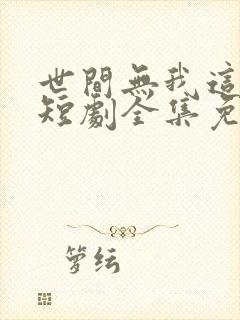 世間無我這
短劇全集免
箩纭